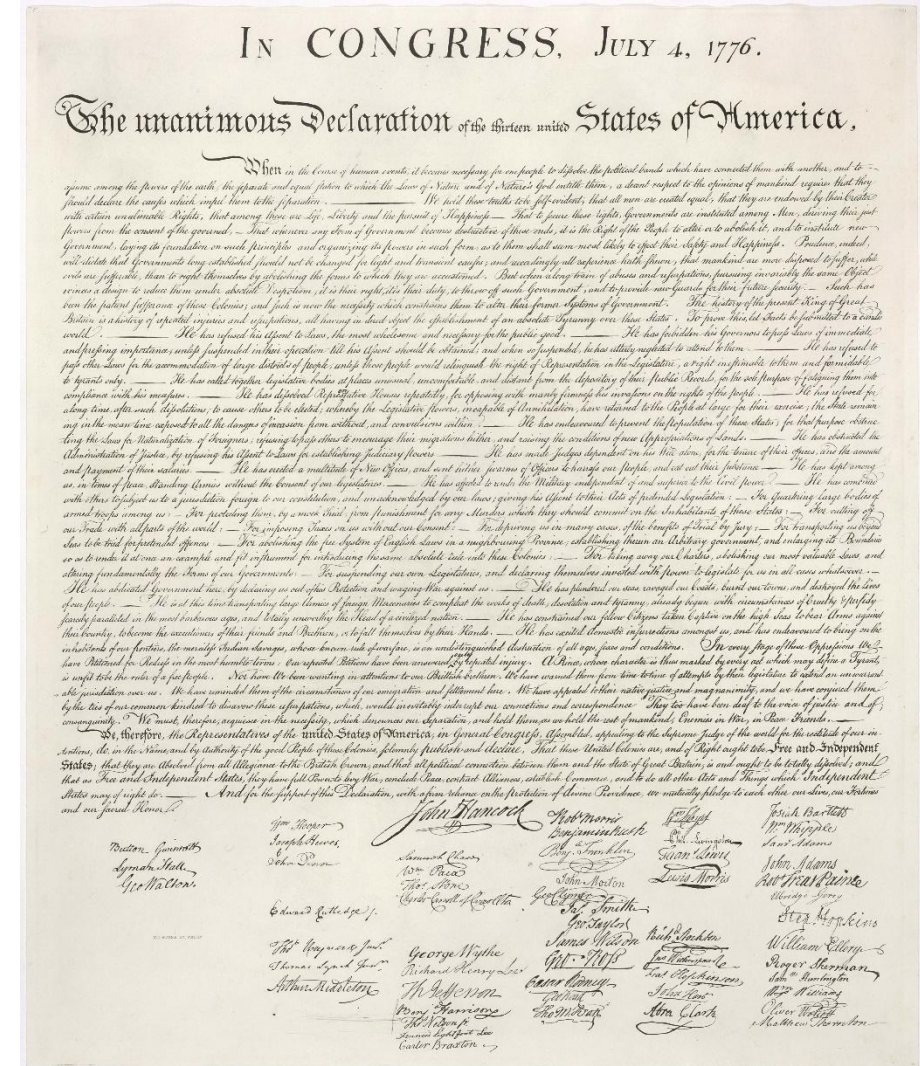 IN CONGRESS, JULY 4, 1776.
The unanimous Declaration of the thirteen united States of America,
When in the Course of human events, it becomes necessary for one people to dissolve the political bands which have connected them with another, and to
assume among the powers of the earth, the separate and equal station to which the Laws of Nature and of Nature's God entitle them, a decent respect to the opinions of mankind requires that they
should declare the causes which impel them to the separation. — We hold these truths to be self-evident, that all men are created equal, that they are endowed by their Creator
with certain unalienable Rights, that among these are Life, Liberty and the pursuit of Happiness — That to secure these rights, Governments are instituted among Men, deriving their just
powers from the consent of the governed, — That whenever any Form of Government becomes destructive of these ends, it is the Right of the People to alter or to abolish it, and to institute new
Government, laying its foundation on such principles and organizing its powers in such form, as to them shall seem most likely to effect their Safety and Happiness. Prudence, indeed,
will dictate that Governments long established should not be changed for light and transient causes; and accordingly all experience hath shewn, that mankind are more disposed to suffer, while
evils are sufferable, than to right themselves by abolishing the forms to which they are accustomed. But when a long train of abuses and usurpations, pursuing invariably the same Object
evinces a design to reduce them under absolute Despotism, it is their right, it is their duty, to throw off such Government, and to provide new Guards for their future security. — Such has
been the patient sufferance of these Colonies; and such is now the necessity which constrains them to alter their former Systems of Government. The history of the present King of Great
Britain is a history of repeated injuries and usurpations, all having in direct object the establishment of an absolute Tyranny over these States. To prove this, let Facts be submitted to a candid
world. — He has refused his Assent to Laws, the most wholesome and necessary for the public good. — He has forbidden his Governors to pass Laws of immediate
and pressing importance, unless suspended in their operation till his Assent should be obtained; and when so suspended, he has utterly neglected to attend to them. — He has refused to
pass other Laws for the accommodation of large districts of people, unless those people would relinquish the right of Representation in the Legislature, a right inestimable to them and formidable
to tyrants only. — He has called together legislative bodies at places unusual, uncomfortable, and distant from the depository of their public Records, for the sole purpose of fatiguing them into
compliance with his measures. — He has dissolved Representative Houses repeatedly, for opposing with manly firmness his invasions on the rights of the people. — He has refused for
a long time, after such dissolutions, to cause others to be elected; whereby the Legislative powers, incapable of Annihilation, have returned to the People at large for their exercise; the State remain
ing in the mean time exposed to all the dangers of invasion from without, and convulsions within. — He has endeavoured to prevent the population of these States; for that purpose obstruc
ting the Laws for Naturalization of Foreigners; refusing to pass others to encourage their migrations hither, and raising the conditions of new Appropriations of Lands. — He has obstructed the
Administration of Justice, by refusing his Assent to Laws for establishing Judiciary powers. — He has made Judges dependent on his Will alone, for the tenure of their offices, and the amount
and payment of their salaries. — He has erected a multitude of New Offices, and sent hither swarms of Officers to harrass our people, and eat out their substance. — He has kept among
us, in times of peace, Standing Armies without the Consent of our legislatures. — He has affected to render the Military independent of and superior to the Civil power. — He has combined
with others to subject us to a jurisdiction foreign to our constitution, and unacknowledged by our laws; giving his Assent to their Acts of pretended Legislation: — For Quartering large bodies of
armed troops among us: — For protecting them, by a mock Trial, from punishment for any Murders which they should commit on the Inhabitants of these States: — For cutting off
our Trade with all parts of the world: — For imposing Taxes on us without our Consent: — For depriving us in many cases, of the benefits of Trial by jury: — For transporting us beyond
Seas to be tried for pretended offences — For abolishing the free System of English Laws in a neighbouring Province, establishing therein an Arbitrary government, and enlarging its Boundaries
so as to render it at once an example and fit instrument for introducing the same absolute rule into these Colonies: — For taking away our Charters, abolishing our most valuable Laws, and
altering fundamentally the Forms of our Governments: — For suspending our own Legislatures, and declaring themselves invested with power to legislate for us in all cases whatsoever. —
He has abdicated Government here, by declaring us out of his Protection and waging War against us. — He has plundered our seas, ravaged our Coasts, burnt our towns, and destroyed the lives
of our people. — He is at this time transporting large Armies of foreign Mercenaries to compleat the works of death, desolation and tyranny, already begun with circumstances of Cruelty & perfidy
scarcely paralleled in the most barbarous ages, and totally unworthy the Head of a civilized nation. — He has constrained our fellow Citizens taken Captive on the high Seas to bear Arms against
their Country, to become the executioners of their friends and Brethren, or to fall themselves by their Hands. — He has excited domestic insurrections amongst us, and has endeavoured to bring on the
inhabitants of our frontiers, the merciless Indian Savages, whose known rule of warfare, is an undistinguished destruction of all ages, sexes and conditions. In every stage of these Oppressions We
have Petitioned for Redress in the most humble terms: Our repeated Petitions have been answered only by repeated injury. A Prince, whose character is thus marked by every act which may define a Tyrant,
is unfit to be the ruler of a free people. Nor have We been wanting in attentions to our Brittish brethren. We have warned them from time to time of attempts by their legislature to extend an unwarrant
able jurisdiction over us. We have reminded them of the circumstances of our emigration and settlement here. We have appealed to their native justice and magnanimity, and we have conjured them
by the ties of our common kindred to disavow these usurpations, which, would inevitably interrupt our connections and correspondence They too have been deaf to the voice of justice and of
consanguinity. We must, therefore, acquiesce in the necessity, which denounces our Separation, and hold them, as we hold the rest of mankind, Enemies in War, in Peace Friends. —
We, therefore, the Representatives of the united States of America, in General Congress, Assembled, appealing to the Supreme Judge of the world for the rectitude of our in
tentions, do, in the Name, and by Authority of the good People of these Colonies, solemnly publish and declare, That these United Colonies are, and of Right ought to be Free and Independent
States; that they are Absolved from all Allegiance to the British Crown, and that all political connection between them and the State of Great Britain, is and ought to be totally dissolved; and
that as Free and Independent States, they have full Power to levy War, conclude Peace, contract Alliances, establish Commerce, and to do all other Acts and Things which Independent
States may of right do. — And for the support of this Declaration, with a firm reliance on the Protection of divine Providence, we mutually pledge to each other our Lives, our Fortunes
and our sacred Honor.
Button Gwinnett
Lyman Hall
Geo Walton.
Wm Hooper
Joseph Hewes,
John Penn
Edward Rutledge /.
Thos Heyward Junr.
Thomas Lynch Junr.
Arthur Middleton
John Hancock
Samuel Chase
Wm Paca
Thos Stone
Charles Carroll of Carrollton
George Wythe
Richard Henry Lee
Th Jefferson
Benj Harrison
Thos Nelson jr.
Francis Lightfoot Lee
Carter Braxton
Robt Morris
Benjamin Rush
Benj Franklin
John Morton
Geo Clymer
Jas Smith
Geo Taylor
James Wilson
Geo. Ross
Caesar Rodney
Geo Read
Tho M:Kean
Wm Floyd
Phil. Livingston
Frans Lewis
Lewis Morris
Richd Stockton
Jno Witherspoon
Fras Hopkinson
John Hart
Abra Clark
Josiah Bartlett
Wm Whipple
Saml Adams
John Adams
Robt Treat Paine
Elbridge Gerry
Step Hopkins
William Ellery
Roger Sherman
Saml Huntington
Wm Williams
Oliver Wolcott
Matthew Thornton